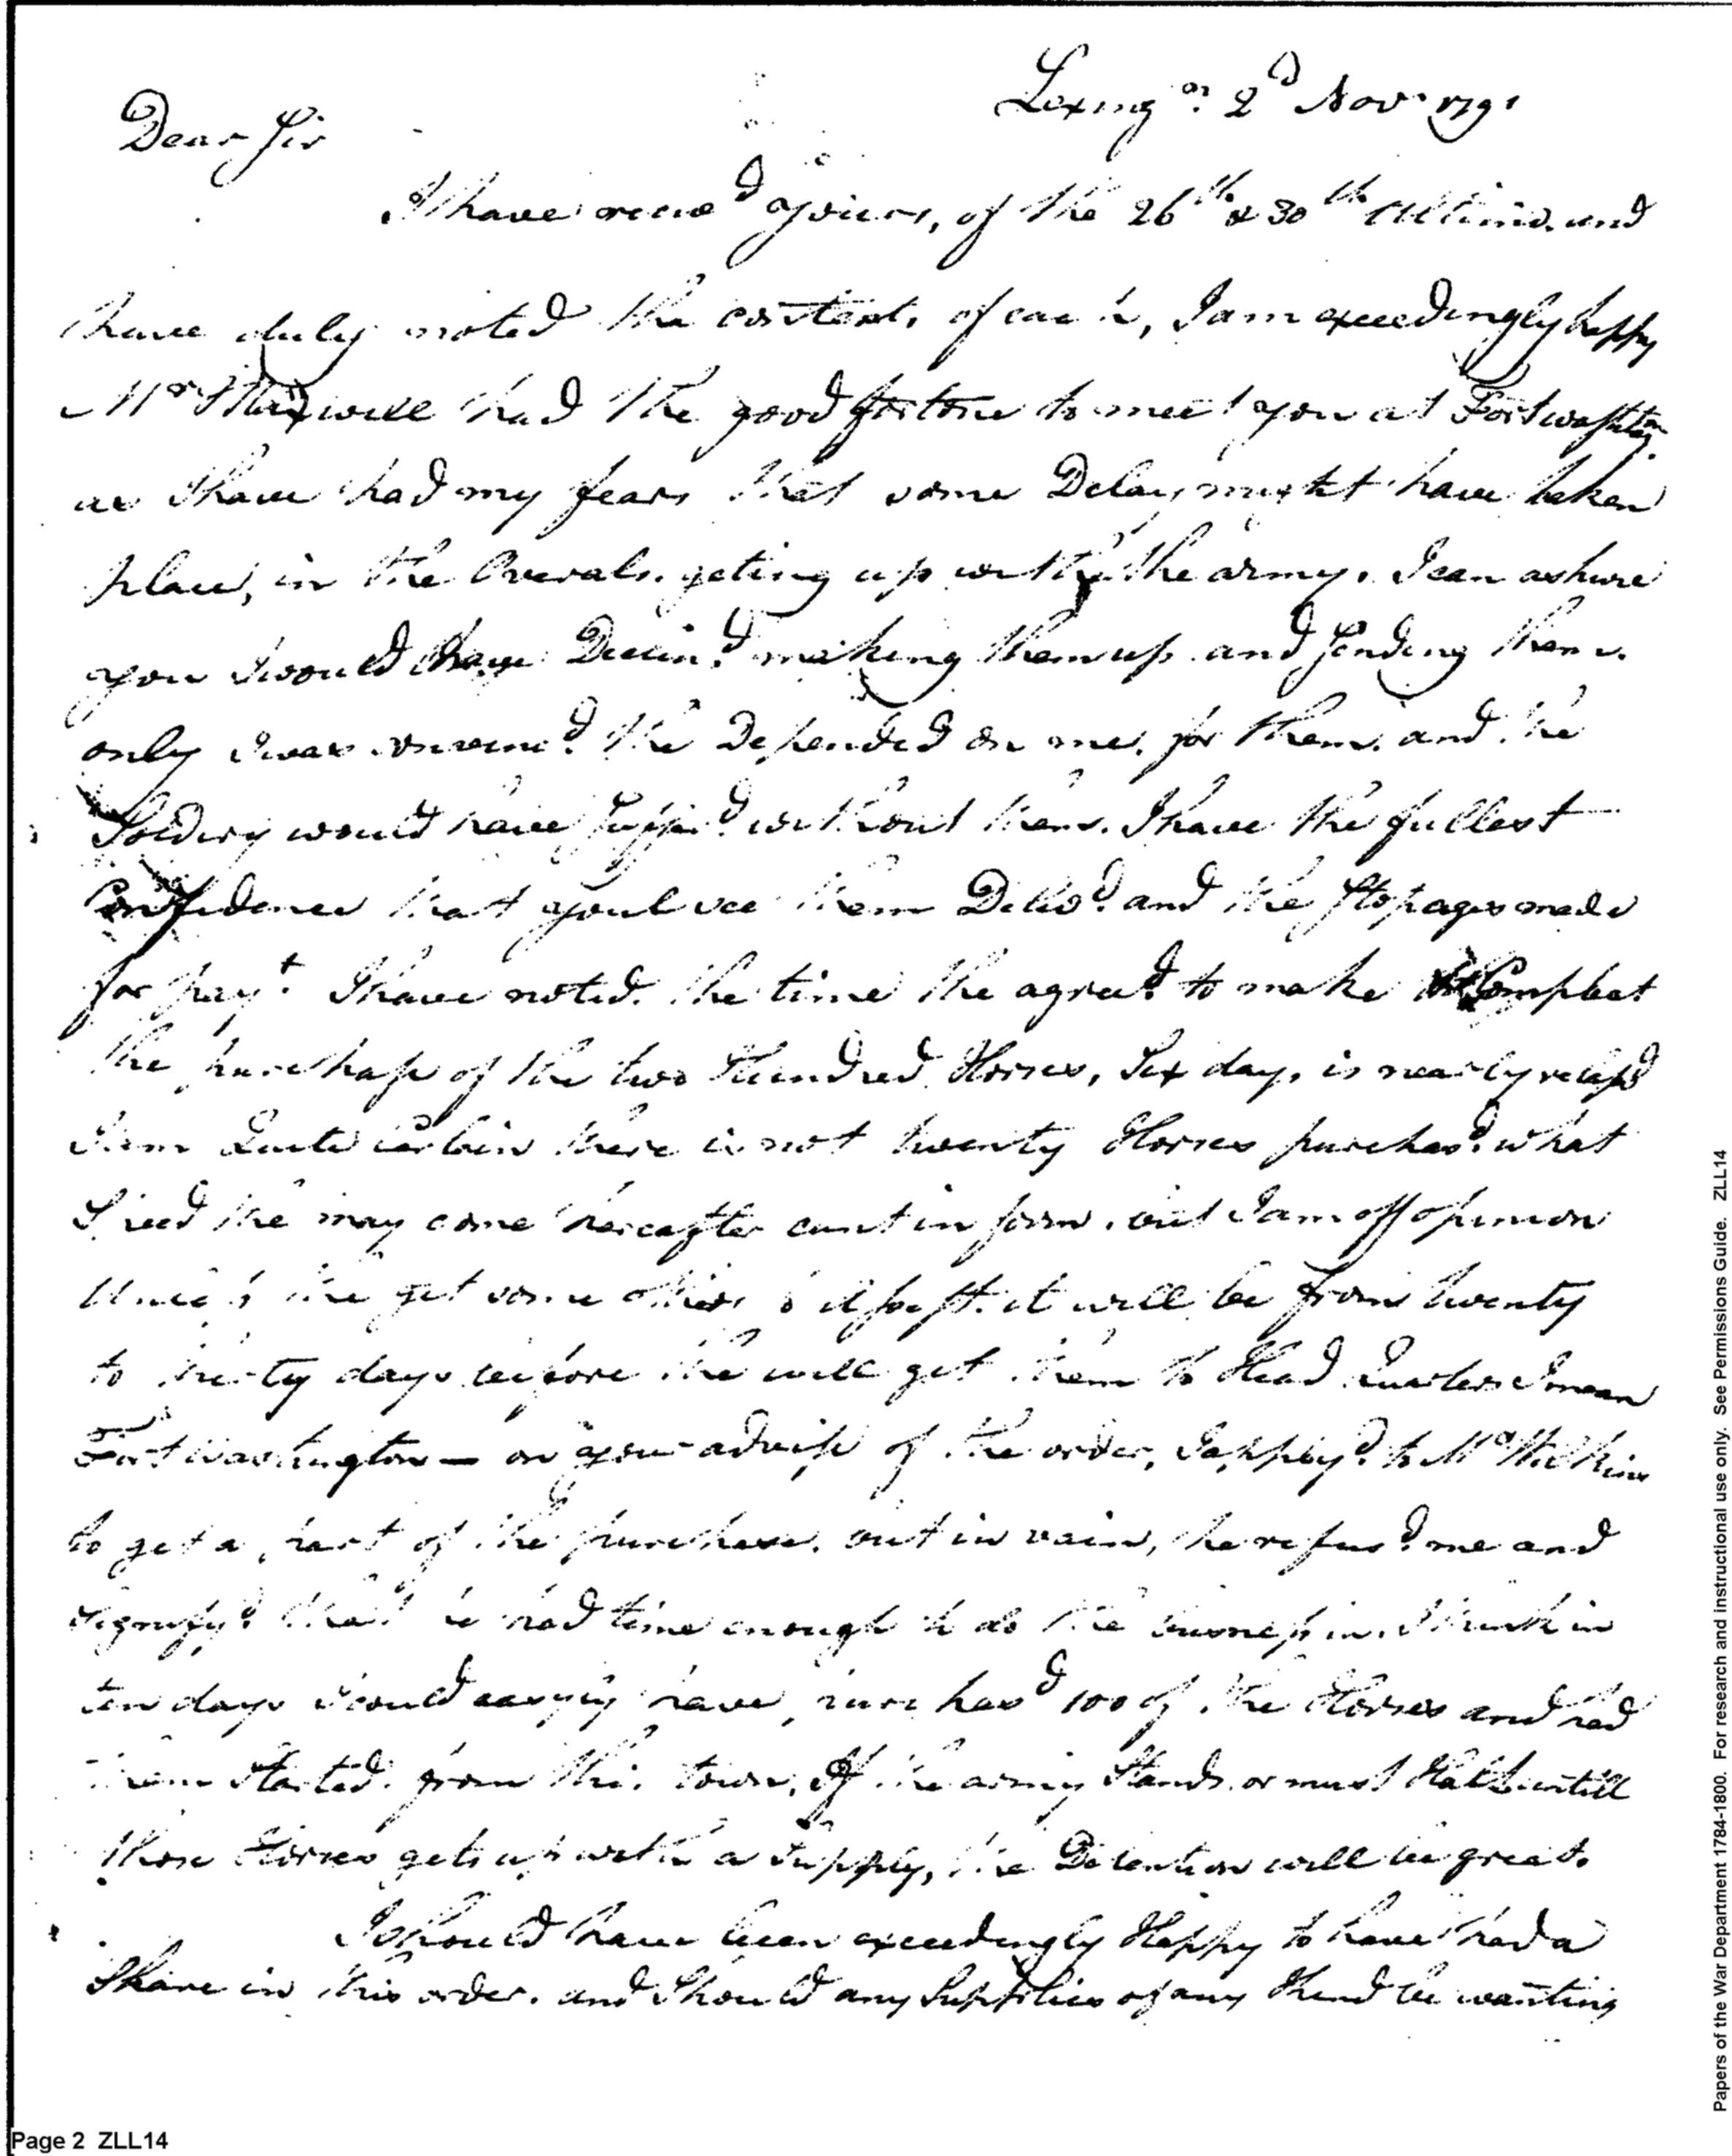 Lexingn. 2d Nov. 1791
Dear Sir
I have recievd yours, of the 26th & 30th Ultimo. and
have duly noted the contents of each, I am exceedingly happy
Mr Maxwell had the good fortone to meet you at Fort washton.
as I have had my fears that some Delay might have taken
place, in the Overals. geting up with the army. I can ashure
you I would have Declind. making them up and Sending them.
only I was the Depended on me. for them. and the
Soldiery would have Sufferd. without them. I have the fullest
Confidence that youl see them Delivd. and the Stopages made
for payt. I have noted. the time the agreed. to make Compleat
the purchass of the two Hundred Horses, Six days is nearly
I am Quite certain there is not twenty Horses purchasd. what
the may come hereafter cant in form. but I am off opinion
Unless the get some it will be from twenty
to thirty days before the will get them to Head Quarters I mean
Fort Washington — on your advise of the order, I applyd. to Mr Wilkins
to get a part of the purchase. but in vain, he refusd. me and
signifyd. that he had time enough to do the business in. I think in
ten days I could easyly have purchasd 100 of the Horses and had
them Started. from this town, If the army Stands or must Halt untill
those Horses gets up with a Supply, the Detention will be great.
I should have been exceedingly Happy to have had a
Share in this order. and Should any Supplies of any Kind be wanting
Page 2 ZLL14
Papers of the War Department 1784-1800. For research and instructional use only. See Permissions Guide. ZLL14